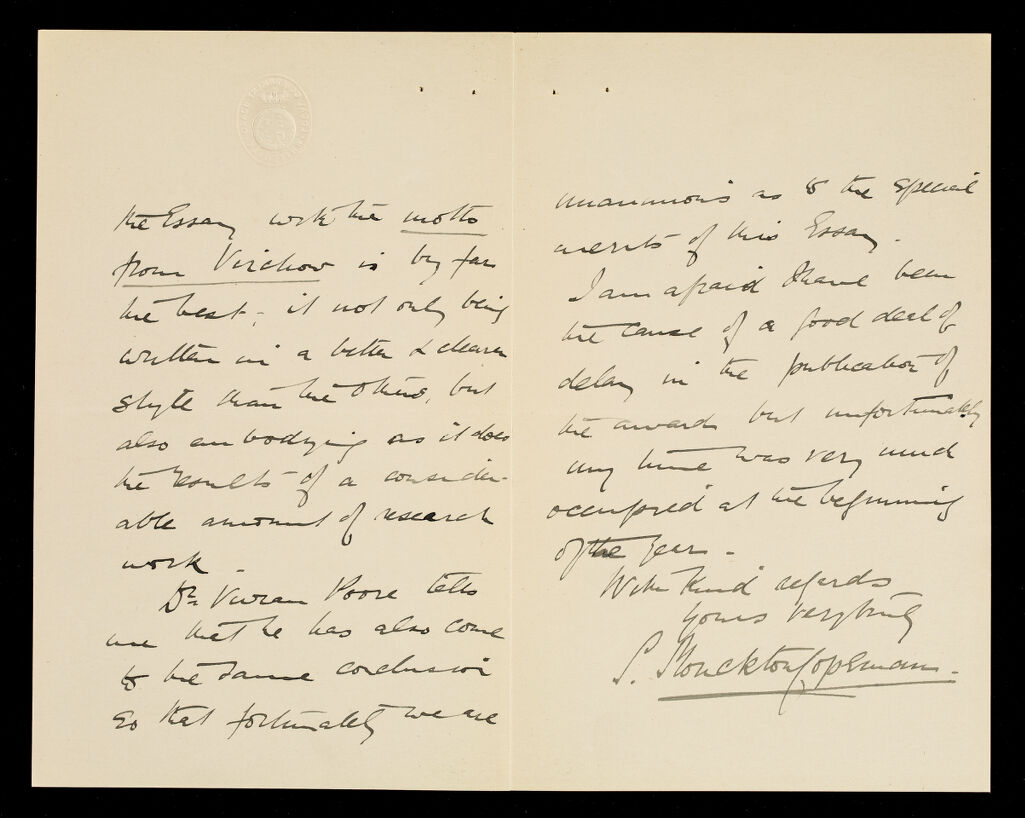 the Essay with the motto
from Virchow is by far
the best - it not only being
written in a better & clearer
style than the others, but
also embodying as it does
the results of a consider-
able amount of research
work.
Dr Vivian Poore tells
me that he has also come
to the same conclusion
so that fortunately we are
unanimous as to the special
merits of this Essay.
I am afraid I have been
the cause of a good deal of
delay in the publication of
the award but unfortunately
my time was very much
occupied at the beginning
of the year -
With Kind regards
yours very truly
S. Monckton Copeman.